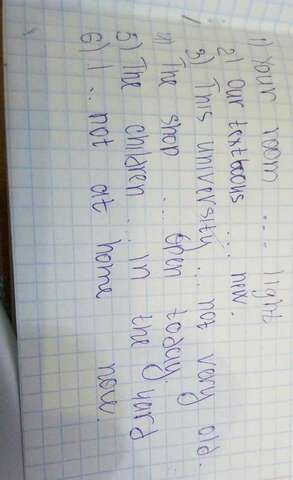 1) Your room .... light
2) Our textbooks .... new.
3) This university ... not very old.
4) The shop ... open today.
5) The children ... in the yard
6) I ... not at home now.